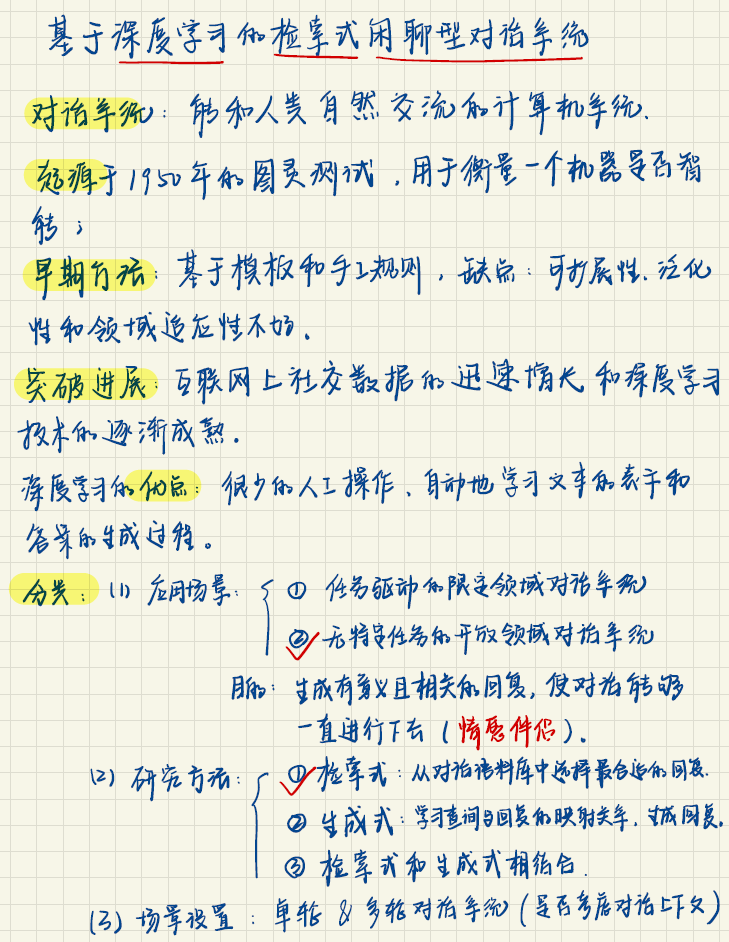 基于深度学习的检索式闲聊型对话系统
对话系统：能和人类自然交流的计算机系统.
起源于1950年的图灵测试，用于衡量一个机器是否智
能；
早期方法：基于模板和手工规则，缺点：可扩展性、泛化
性和领域适应性不好.
突破进展：互联网上社交数据的迅速增长和深度学习
技术的逐渐成熟.
深度学习的优点：很少的人工操作、自动地学习文本的表示和
答案的生成过程。
分类：(1) 应用场景：① 任务驱动的限定领域对话系统
② 无特定任务的开放领域对话系统
目的：生成有意义且相关的回复，使对话能够
一直进行下去（情感伴侣）.
(2) 研究方法：① 检索式：从对话语料库中选择最合适的回复.
② 生成式：学习查询与回复的映射关系，生成回复.
③ 检索式和生成式相结合.
(3) 场景设置：单轮 & 多轮对话系统（是否考虑对话上下文）